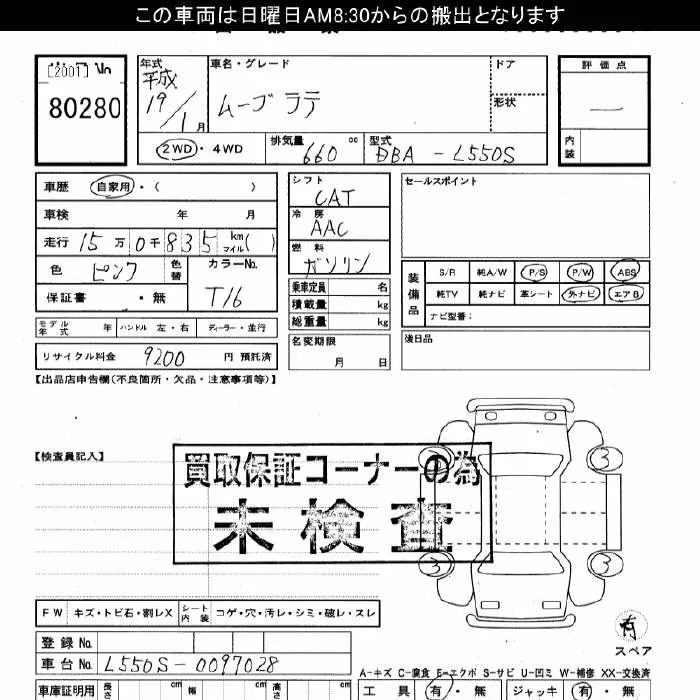 この車両は日曜日AM8:30からの搬出となります
[2001] No
80280
年式
平成
19/1月
車名・グレード
ムーヴ ラテ
ドア
形状
評価点
—
内装
2WD・4WD
排気量 660 cc
型式 DBA - L550S
車歴 自家用・( )
車検 年 月
走行 15万0千835 km マイル( )
色 ピンク 色替
カラーNo. T16
保証書 ・無
モデル年式 年 ハンドル 左・右 ディーラー・並行
リサイクル料金 9200 円 預託済
シフト CAT
冷房 AAC
燃料 ガソリン
乗車定員 名
積載量 kg
総重量 kg
名変期限
月 日
セールスポイント
装備品
S/R 純A/W P/S P/W ABS
純TV 純ナビ 革シート 外ナビ エアB
ナビ型番:
後日品
【出品店申告欄(不良箇所・欠品・注意事項等)】
【検査員記入】
買取保証コーナーの為
未検査
3 3
3 3
有
スペア
FW キズ・トビ石・割レX シート内装 コゲ・穴・汚レ・シミ・破レ・スレ
登録No.
車台No. L550S-0097028
A-キズ C-腐食 E-エクボ S-サビ U-凹ミ W-補修 XX-交換済
車庫証明用 長さ cm 幅 cm 高さ cm
工具 有・無 ジャッキ 有・無